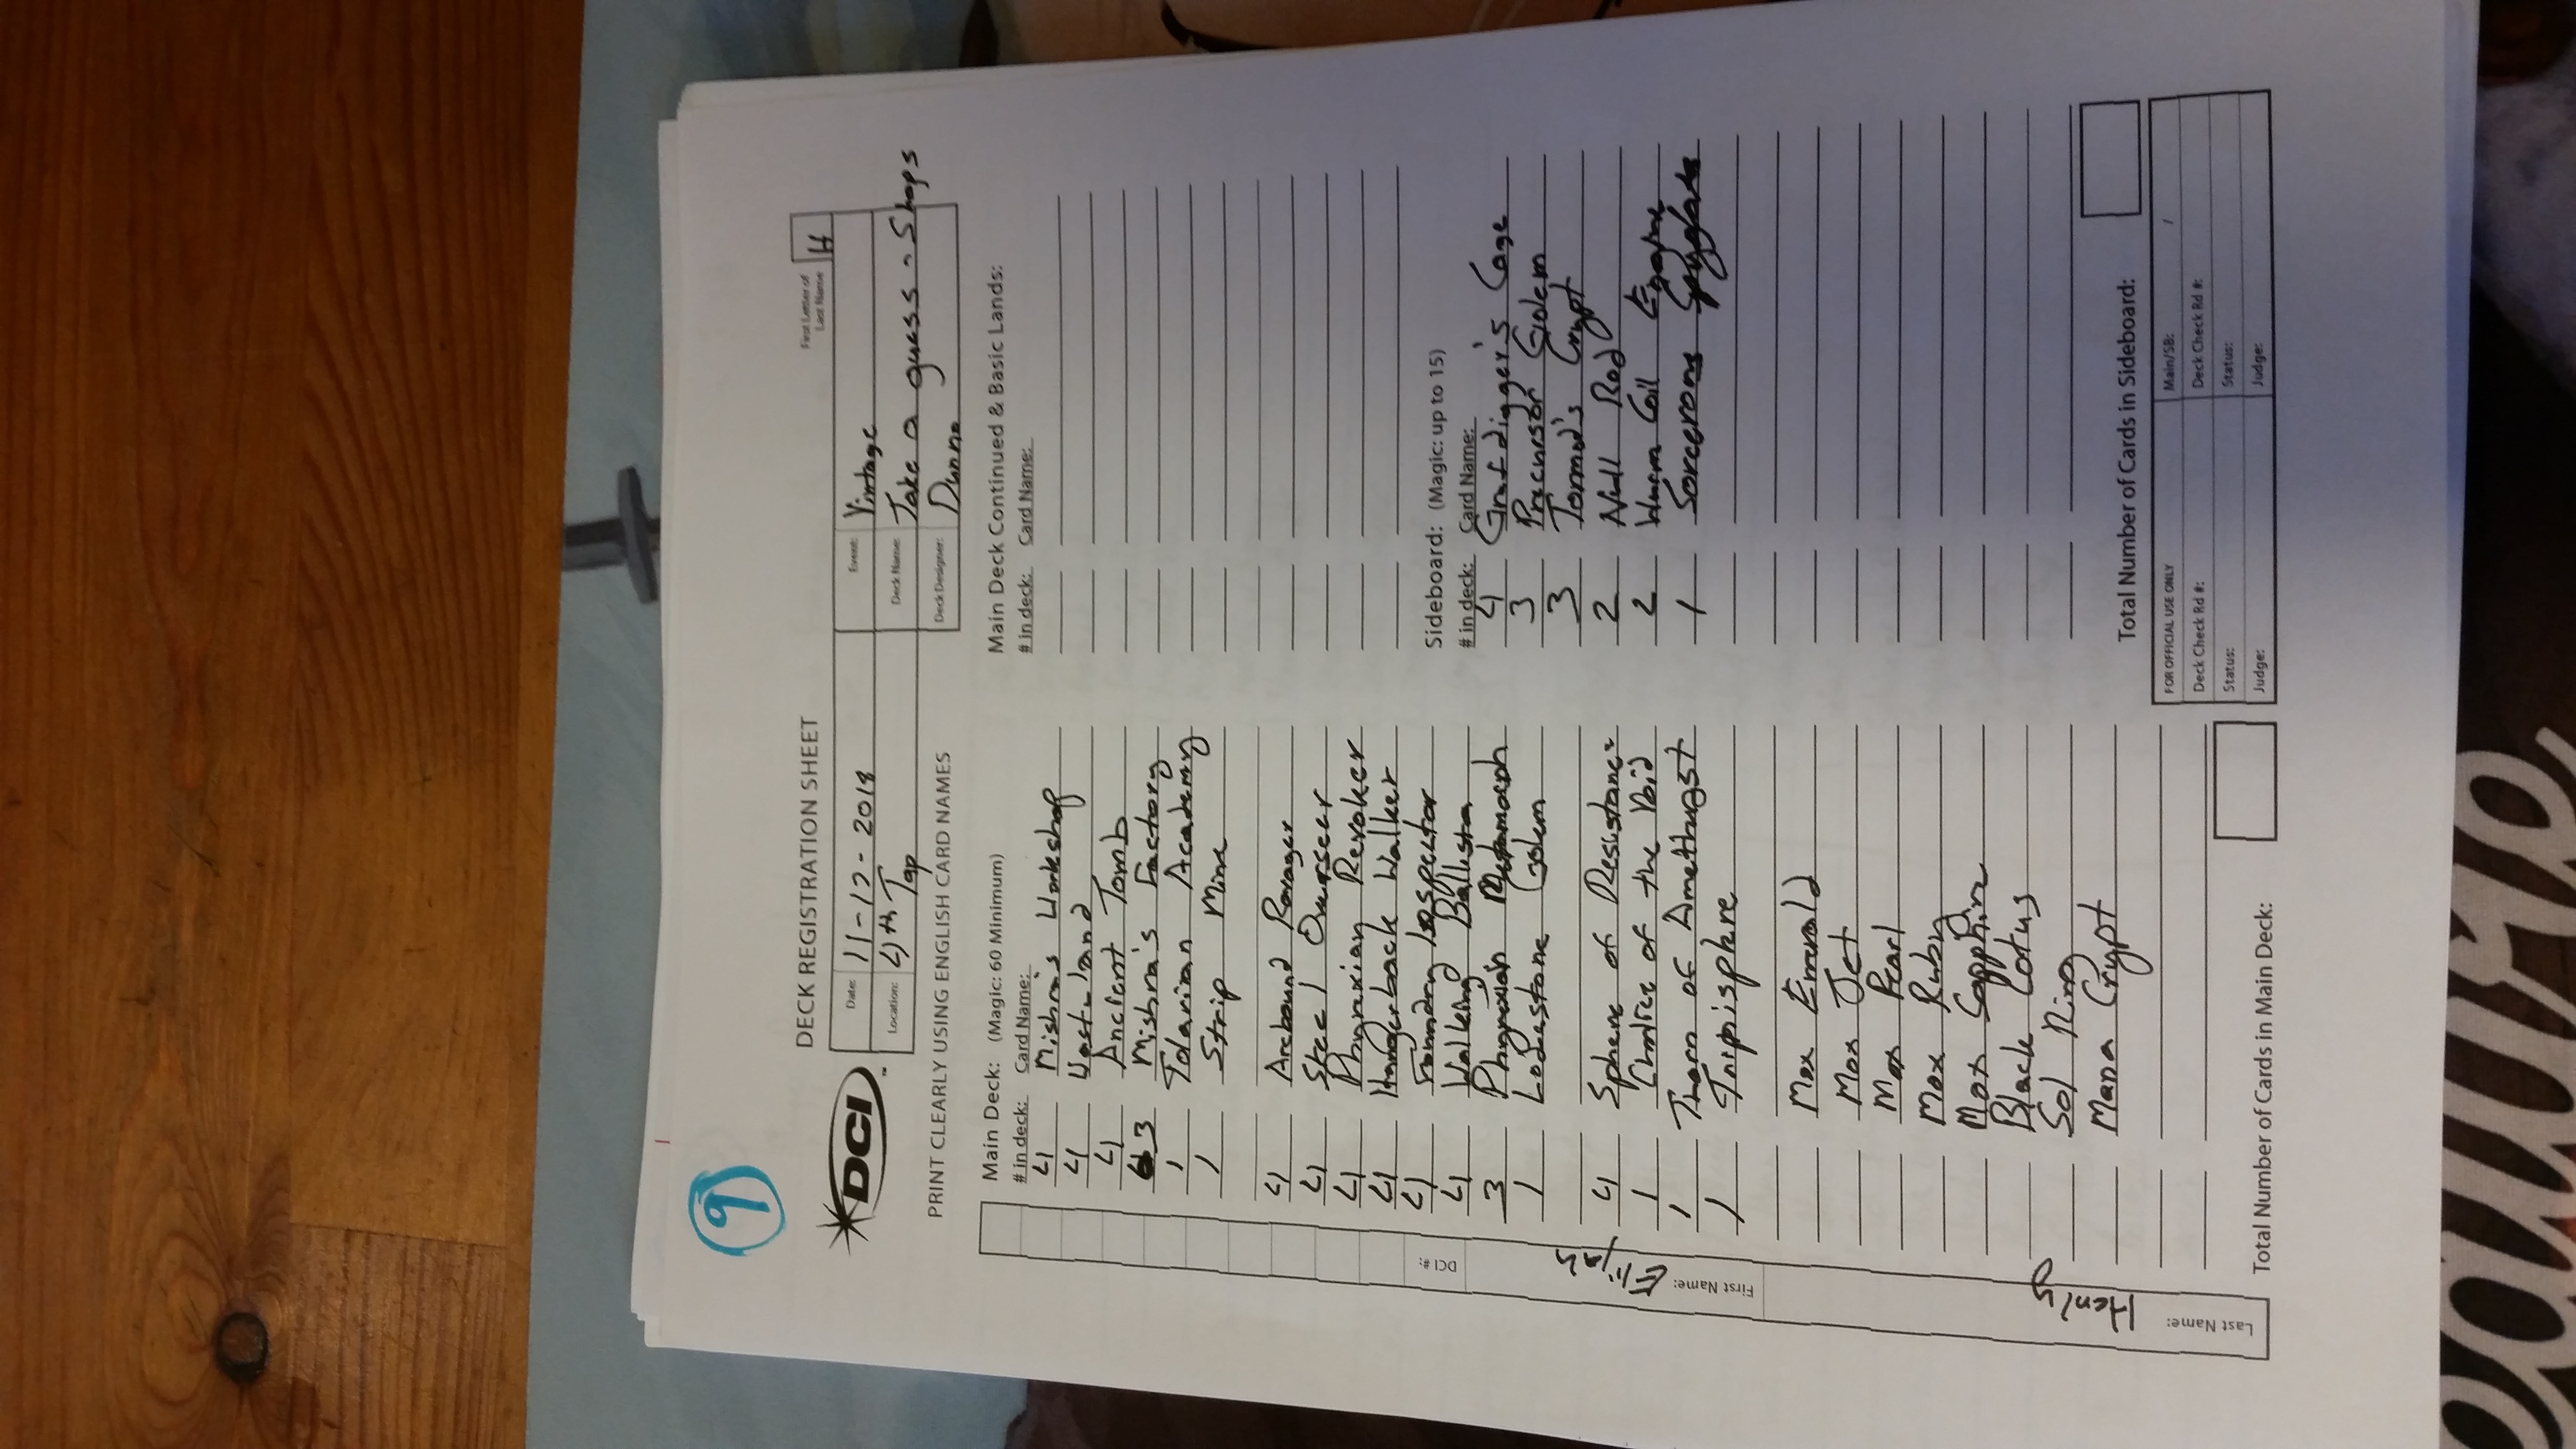 9
DECK REGISTRATION SHEET
First Letter of Last Name H
DCI
Date: 11-17-2018
Event: Vintage
Location: 4th Tap
Deck Name: Take a guess - Shops
PRINT CLEARLY USING ENGLISH CARD NAMES
Deck Designer: Dunno
Main Deck: (Magic: 60 Minimum)
# in deck: Card Name:
4 Mishra's Workshop
4 Wasteland
4 Ancient Tomb
3 Mishra's Factory
1 Tolarian Academy
1 Strip Mine
4 Arcbound Ravager
4 Steel Overseer
4 Phyrexian Revoker
4 Hangerback Walker
4 Foundry Inspector
4 Walking Ballista
3 Phyrexian Metamorph
1 Lodestone Golem
4 Sphere of Resistance
1 Chalice of the Void
1 Thorn of Amethyst
1 Trinisphere
Mox Emerald
Mox Jet
Mox Pearl
Mox Ruby
Mox Sapphire
Black Lotus
Sol Ring
Mana Crypt
Total Number of Cards in Main Deck:
Main Deck Continued & Basic Lands:
# in deck: Card Name:
Sideboard: (Magic: up to 15)
# in deck: Card Name:
4 Grafdigger's Cage
3 Precursor Golem
3 Tormod's Crypt
2 Null Rod
2 Wurm Coil Engine
1 Sorcerous Spyglass
Total Number of Cards in Sideboard:
FOR OFFICIAL USE ONLY Main/SB: /
Deck Check Rd #: Deck Check Rd #:
Status: Status:
Judge: Judge:
DCI #:
First Name: Elijah
Last Name: Henly